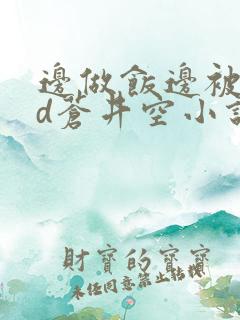 邊做飯邊被
d蒼井空小說
財寶的寶寶
未经同意禁止转撰